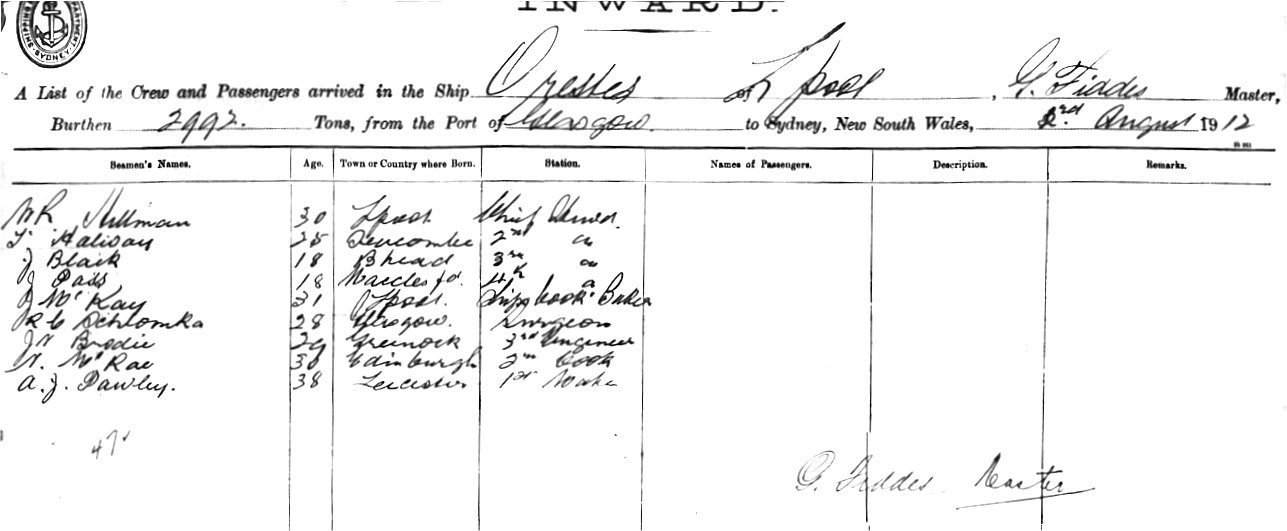 INWARD.
SHIPPING DEPARTMENT SYDNEY
A List of the Crew and Passengers arrived in the Ship Orestes of Lpool, G. Fiddes Master,
Burthen 2992. Tons, from the Port of Glasgow. to Sydney, New South Wales, 2nd August 1912
Seamen's Names. Age. Town or Country where Born. Station. Names of Passengers. Description. Remarks.
W R Hillman 30 Lpool Chief Steward.
T 25 2nd
J Black 18 Bhead 3rd
J Pass 18 Macclesfd. 4th
J McKay 31 Lpool. Ships Cook & Baker
R C 28 Glasgow. Surgeon
J N Brodie 29 Greenock 3rd Engineer
N. McRae 30 Edinburgh 2nd Cook
A. J. Pawley. 38 Leicester 1st Mate
47
G. Fiddes Master